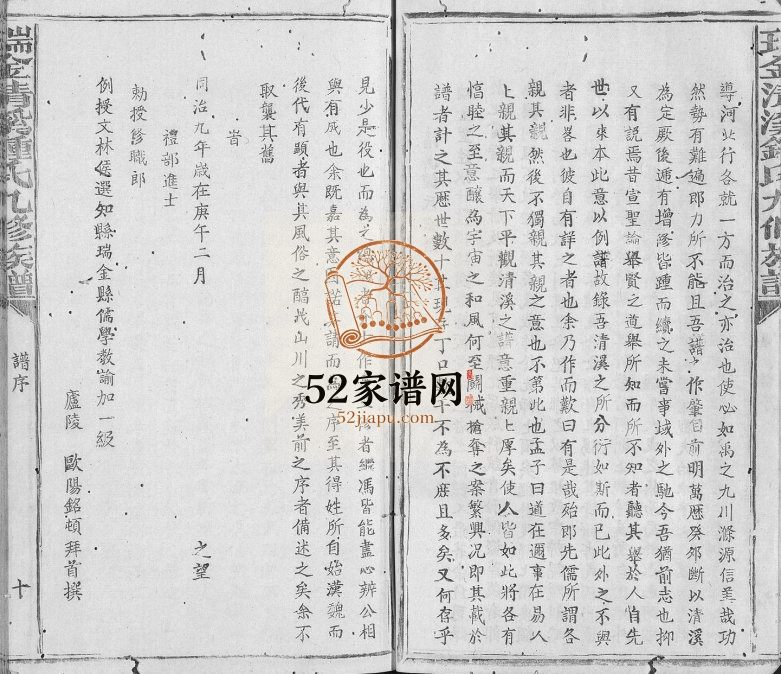 導河北行各就一方而治之亦治也使必如禹之九川滌源信美哉功
然勢有難遍即力所不能且吾譜之作肇自前明萬曆癸卯斷以清溪
為定厥後遞有增修皆踵而續之未嘗事域外之馳今吾猶前志也抑
又有說焉昔宣聖論舉賢之道舉所知而所不知者聽其舉於人自先
世以來本此意以例譜故錄吾清溪之所分衍如斯而已此外之不與
者非畧也彼自有詳之者也余乃作而歎曰有是哉殆即先儒所謂各
親其親然後不獨親其親之意也不第此也孟子曰道在邇事在易人
上親其親而天下平觀清溪之譜意重親上厚矣使人皆如此將各有
惇睦之至意釀為宇宙之和風何至鬭械搶奪之案繁興况即其載於
譜者計之其歷世數十 現 丁口 十不為不庶且多矣又何存乎
見少是役也而為之 者 作 者繼馮皆能盡心辦公相
與有成也余既嘉其意 諾 請而為之序至其得姓所自始漢魏而
後代有顯者與其風俗之醇茂山川之秀美前之序者備述之矣無不
取襲其舊
旹
同治九年歲在庚午二月 之望
禮部進士
勅授修職郎
例授文林郎選知縣瑞金縣儒學教諭加一級
廬陵 歐陽銘頓拜首撰
瑞金清溪鍾氏九修族譜
譜序
十
52家谱网
52jiapu.com